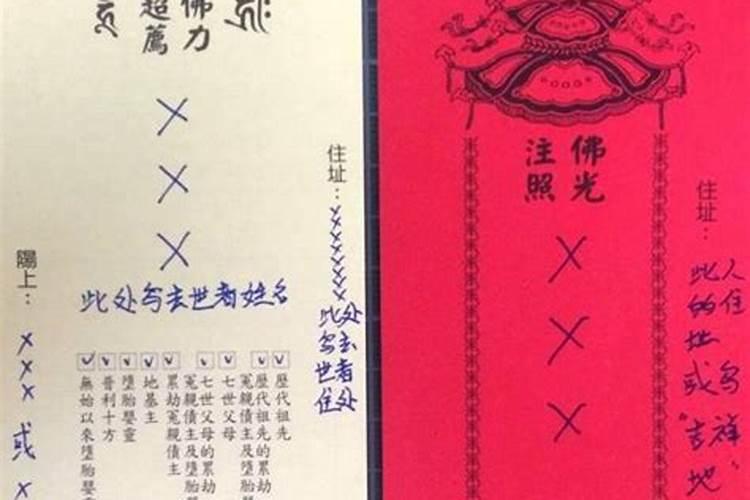 佛力
超薦
×
×
×
此处写去世者姓名
住址：×××××××
此处
写去
世者
住处
歷代祖先
歷代祖先的累劫
冤親債主及墮胎嬰
七世父母
七世父母的累劫
冤親債主及墮胎嬰
累劫冤親債主
地基主
墮胎嬰靈
普利十方
無始以來墮胎嬰
陽上：×××或×
佛光
注照
×
×
×
住址：
此人
的住
址
或写
“吉祥
地”